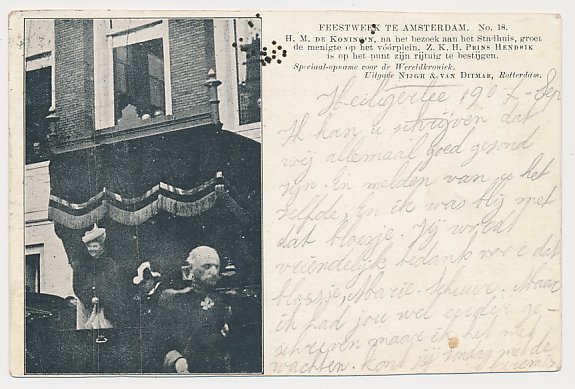 FEESTWEEK TE AMSTERDAM. No. 18.
H. M. DE KONINGIN, na het bezoek aan het Stadhuis, groet
de menigte op het vóórplein. Z. K. H. PRINS HENDRIK
is op het punt zijn rijtuig te bestijgen.
Speciaal-opname voor de Wereldkroniek.
Uitgave NIJGH & VAN DITMAR, Rotterdam.
Heiligerlee 1907 - Sep
Ik kan u schrijven dat
wij allemaal goed gezond
zyn. En melden van je het
zelfde, En ik was blij met
dat bloesje. Jij wordt
vriendelijk bedank voor dat
blosje, Marie Maar
ik had jou wel eerder ge-
schreven maar ik het niet
wachten. Kom jij